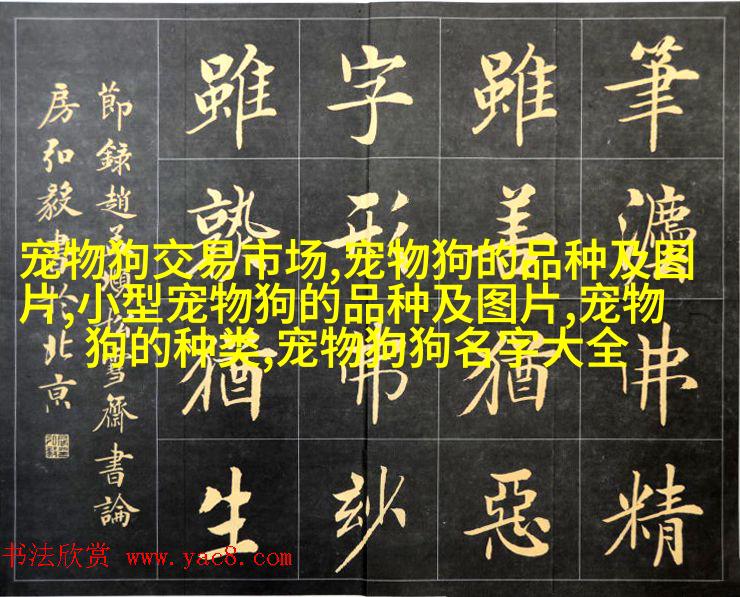 筆灋佛精
雖善猶惡
字形佛玅
雖熟猶生
節錄趙孟頫松雪齋書論
房弘毅書於北京
宠物狗交易市场,宠物狗的品种及图
片,小型宠物狗的品种及图片,宠物
狗的种类,宠物狗狗名字大全
书法欣赏 www.yac8.com